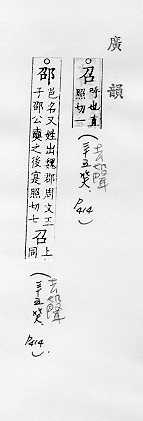 廣韻
召 呼也直
照切一
(三十五笑。
去聲
P414)
邵 邑名又姓出魏郡周文王
子邵公奭之後寔照切七 召 上同
(三十五笑。
去聲
P414)